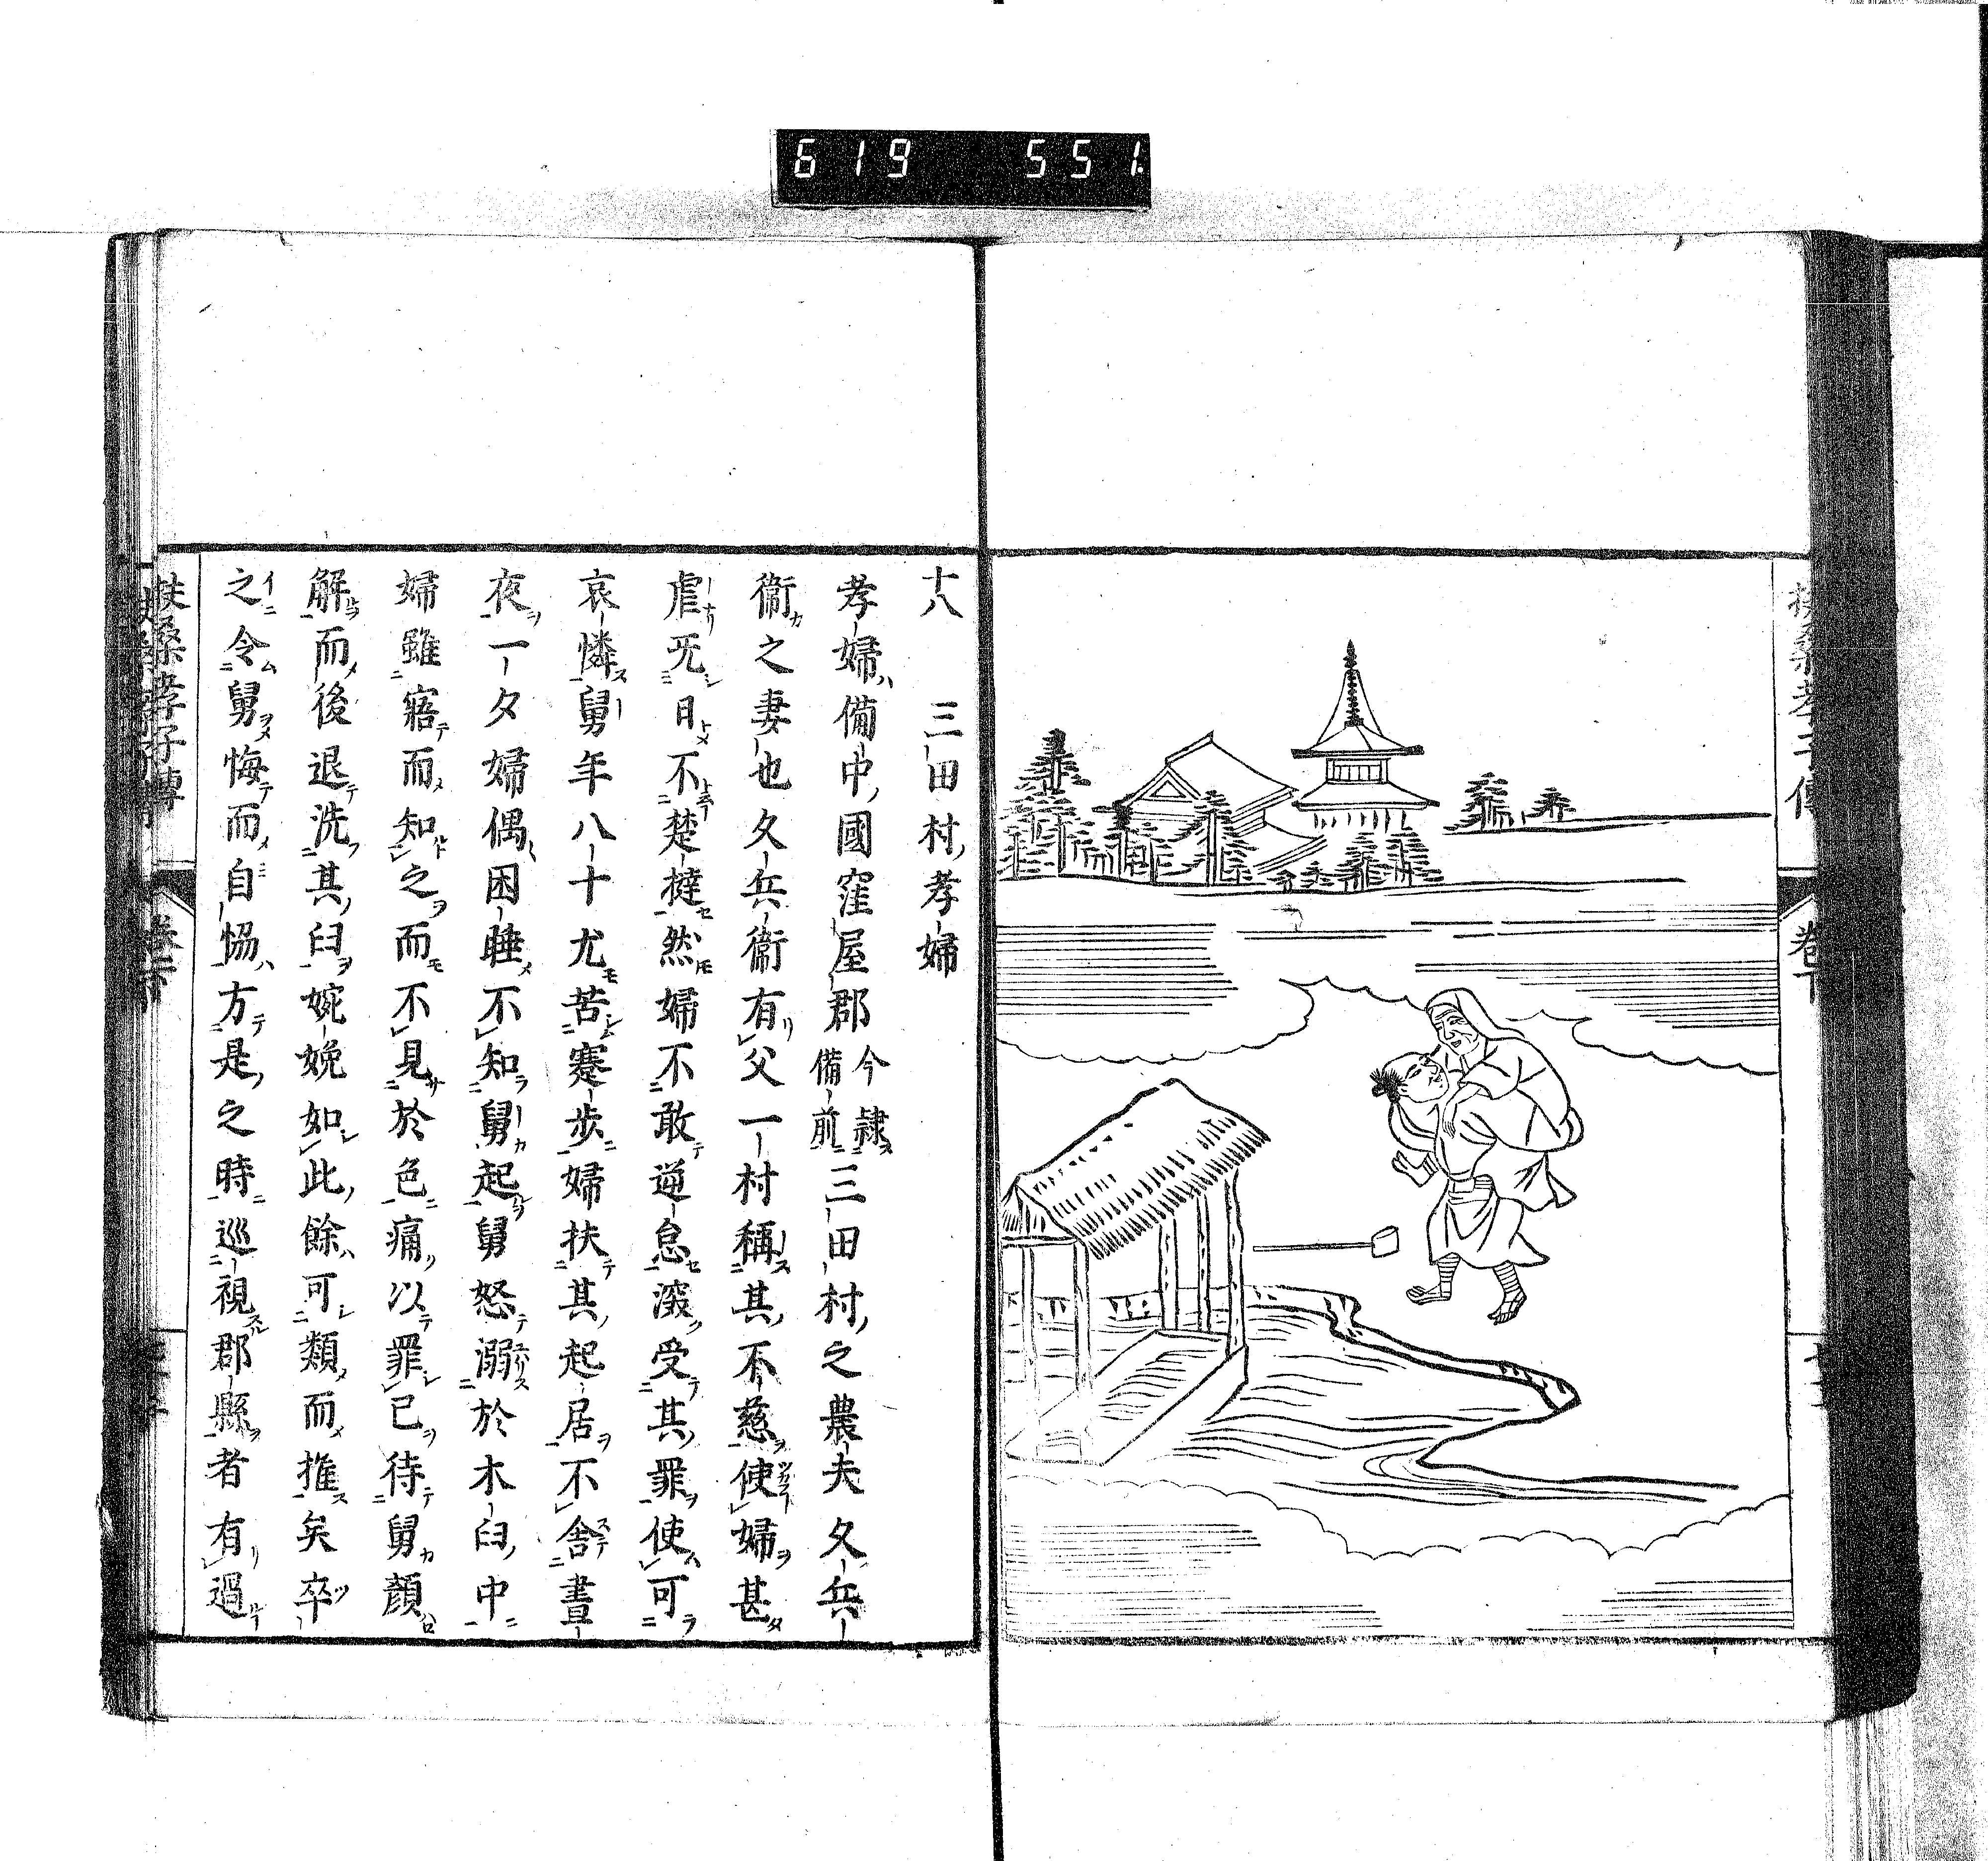 619 551
扶桑孝子傳
卷下
十八 三田村孝婦
孝婦備中國窪屋郡今隷備前三田村之農夫久兵
衞之妻也久兵衞有父一村稱其不慈使婦甚
虐旡日不楚撻然婦不敢逆怠深受其罪使可
哀憐舅年八十尤苦蹇步婦扶其起居不舍晝
夜一夕婦偶困睡不知舅起舅怒溺於木臼中
婦雖寤而知之而不見於色痛以罪已待舅顏
解而後退洗其臼婉娩如此餘可類而推矣卒
之令舅悔而自恊方是之時巡視郡縣者有過
扶桑孝子傳
卷下